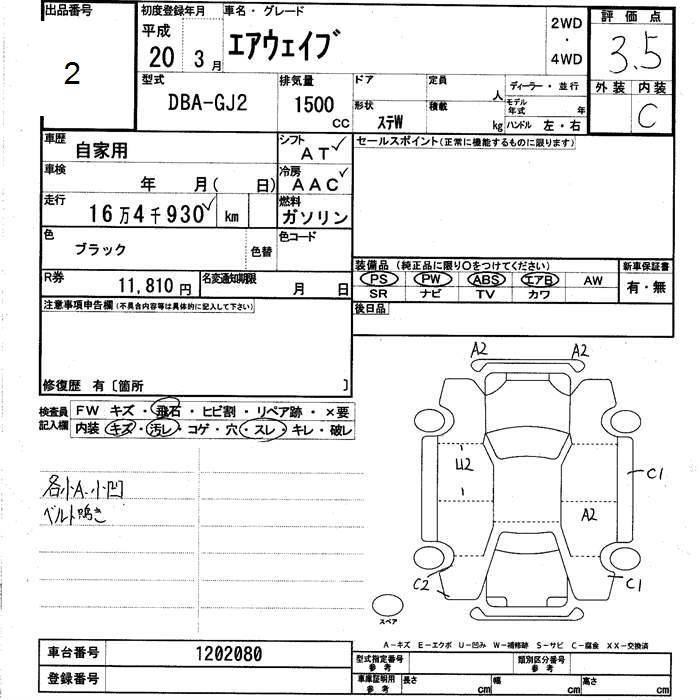 出品番号
2
初度登録年月
平成
20 3月
車名・グレード
エアウェイブ
2WD
・
4WD
評価点
3.5
外装 内装
C
型式
DBA-GJ2
排気量
1500
CC
ドア
定員
人
形状
ステW
積載
kg
ディーラー・並行
モデル年式 年
ハンドル 左・右
車歴
自家用
シフト
AT✓
セールスポイント(正常に機能するものに限ります)
車検
年 月( 日)
冷房
AAC✓
走行
16万4千930✓ km
燃料
ガソリン
色
ブラック
色替
色コード
装備品 (純正品に限り○をつけてください)
PS PW ABS エアB AW
SR ナビ TV カワ
新車保証書
有・無
R券
11,810円
名変通知期限
月 日
後日品
注意事項申告欄(不具合内容等は具体的に記入して下さい)
修復歴 有〔箇所 〕
検査員記入欄
FW キズ・飛石・ヒビ割・リペア跡・×要
内装・キズ・汚レ・コゲ・穴・スレ・キレ・破レ
各小A.小凹
ベルト鳴き
A2 A2
U2
C1
A2
C2
C1
スペア
A-キズ E-エクボ U-凹み W-補修跡 S-サビ C-腐食 XX-交換済
車台番号
1202080
登録番号
型式指定番号
参考
類別区分番号
参考
車庫証明用
参考
長さ cm
幅 cm
高さ cm